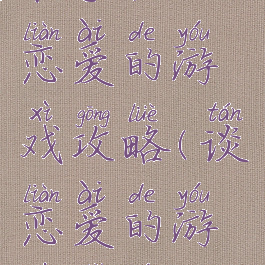 liàn ài de yóu
恋爱的游
xì gōng lüè tán
戏攻略(谈
liàn ài de yóu
恋爱的游